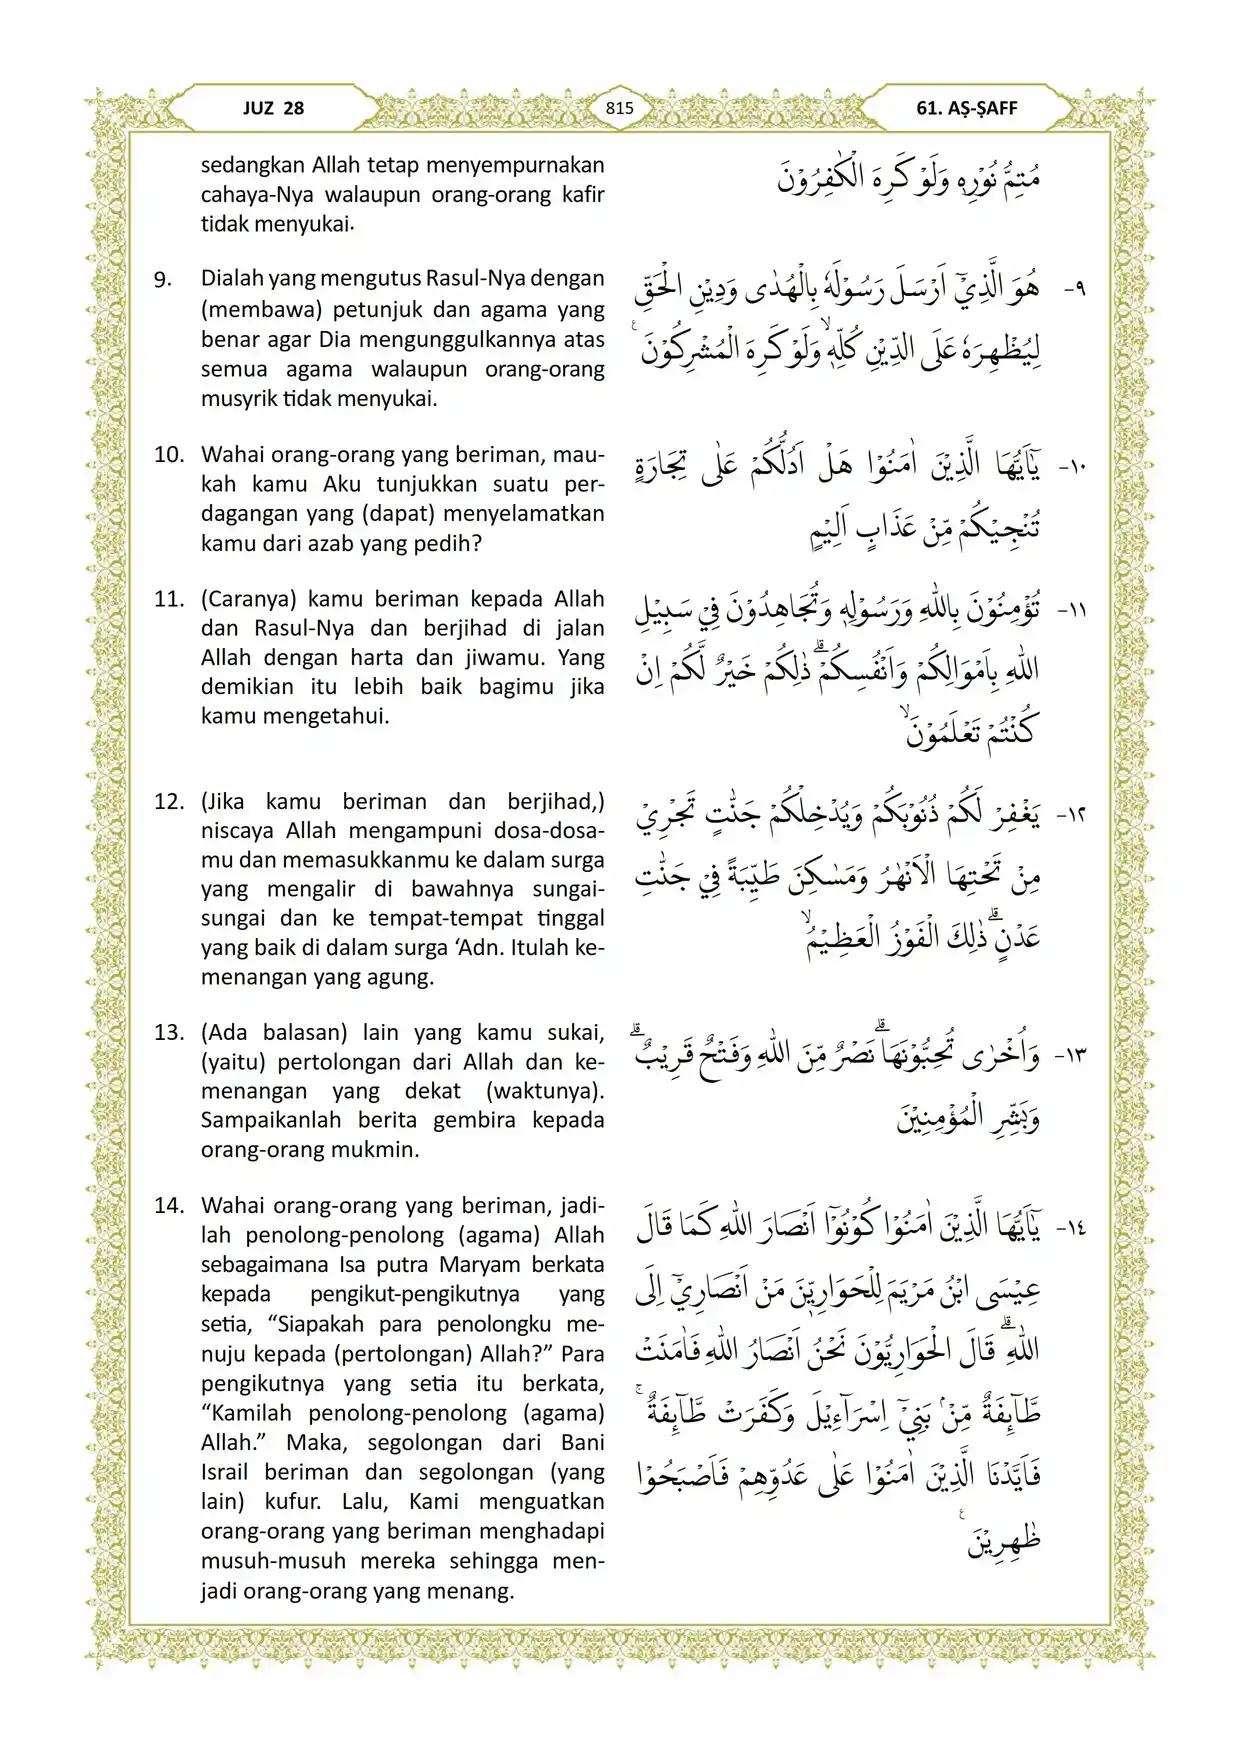 JUZ 28
815
61. AṢ-ṢAFF
sedangkan Allah tetap menyempurnakan
cahaya-Nya walaupun orang-orang kafir
tidak menyukai.
مُتِمُّ نُوْرِهٖ وَلَوْ كَرِهَ الْكٰفِرُوْنَ
9. Dialah yang mengutus Rasul-Nya dengan
(membawa) petunjuk dan agama yang
benar agar Dia mengunggulkannya atas
semua agama walaupun orang-orang
musyrik tidak menyukai.
٩- هُوَ الَّذِيْٓ اَرْسَلَ رَسُوْلَهٗ بِالْهُدٰى وَدِيْنِ الْحَقِّ
لِيُظْهِرَهٗ عَلَى الدِّيْنِ كُلِّهٖۙ وَلَوْ كَرِهَ الْمُشْرِكُوْنَ ࣖ
10. Wahai orang-orang yang beriman, mau-
kah kamu Aku tunjukkan suatu per-
dagangan yang (dapat) menyelamatkan
kamu dari azab yang pedih?
١٠- يٰٓاَيُّهَا الَّذِيْنَ اٰمَنُوْا هَلْ اَدُلُّكُمْ عَلٰى تِجَارَةٍ
تُنْجِيْكُمْ مِّنْ عَذَابٍ اَلِيْمٍ
11. (Caranya) kamu beriman kepada Allah
dan Rasul-Nya dan berjihad di jalan
Allah dengan harta dan jiwamu. Yang
demikian itu lebih baik bagimu jika
kamu mengetahui.
١١- تُؤْمِنُوْنَ بِاللّٰهِ وَرَسُوْلِهٖ وَتُجَاهِدُوْنَ فِيْ سَبِيْلِ
اللّٰهِ بِاَمْوَالِكُمْ وَاَنْفُسِكُمْۗ ذٰلِكُمْ خَيْرٌ لَّكُمْ اِنْ
كُنْتُمْ تَعْلَمُوْنَۙ
12. (Jika kamu beriman dan berjihad,)
niscaya Allah mengampuni dosa-dosa-
mu dan memasukkanmu ke dalam surga
yang mengalir di bawahnya sungai-
sungai dan ke tempat-tempat tinggal
yang baik di dalam surga ‘Adn. Itulah ke-
menangan yang agung.
١٢- يَغْفِرْ لَكُمْ ذُنُوْبَكُمْ وَيُدْخِلْكُمْ جَنّٰتٍ تَجْرِيْ
مِنْ تَحْتِهَا الْاَنْهٰرُ وَمَسٰكِنَ طَيِّبَةً فِيْ جَنّٰتِ
عَدْنٍۗ ذٰلِكَ الْفَوْزُ الْعَظِيْمُۙ
13. (Ada balasan) lain yang kamu sukai,
(yaitu) pertolongan dari Allah dan ke-
menangan yang dekat (waktunya).
Sampaikanlah berita gembira kepada
orang-orang mukmin.
١٣- وَاُخْرٰى تُحِبُّوْنَهَاۗ نَصْرٌ مِّنَ اللّٰهِ وَفَتْحٌ قَرِيْبٌۗ
وَبَشِّرِ الْمُؤْمِنِيْنَ
14. Wahai orang-orang yang beriman, jadi-
lah penolong-penolong (agama) Allah
sebagaimana Isa putra Maryam berkata
kepada pengikut-pengikutnya yang
setia, “Siapakah para penolongku me-
nuju kepada (pertolongan) Allah?” Para
pengikutnya yang setia itu berkata,
“Kamilah penolong-penolong (agama)
Allah.” Maka, segolongan dari Bani
Israil beriman dan segolongan (yang
lain) kufur. Lalu, Kami menguatkan
orang-orang yang beriman menghadapi
musuh-musuh mereka sehingga men-
jadi orang-orang yang menang.
١٤- يٰٓاَيُّهَا الَّذِيْنَ اٰمَنُوْا كُوْنُوْٓا اَنْصَارَ اللّٰهِ كَمَا قَالَ
عِيْسَى ابْنُ مَرْيَمَ لِلْحَوَارِيّٖنَ مَنْ اَنْصَارِيْٓ اِلَى
اللّٰهِۗ قَالَ الْحَوَارِيُّوْنَ نَحْنُ اَنْصَارُ اللّٰهِ فَاٰمَنَتْ
طَّاۤىِٕفَةٌ مِّنْۢ بَنِيْٓ اِسْرَاۤءِيْلَ وَكَفَرَتْ طَّاۤىِٕفَةٌ ۚ
فَاَيَّدْنَا الَّذِيْنَ اٰمَنُوْا عَلٰى عَدُوِّهِمْ فَاَصْبَحُوْا
ظٰهِرِيْنَ ࣖ